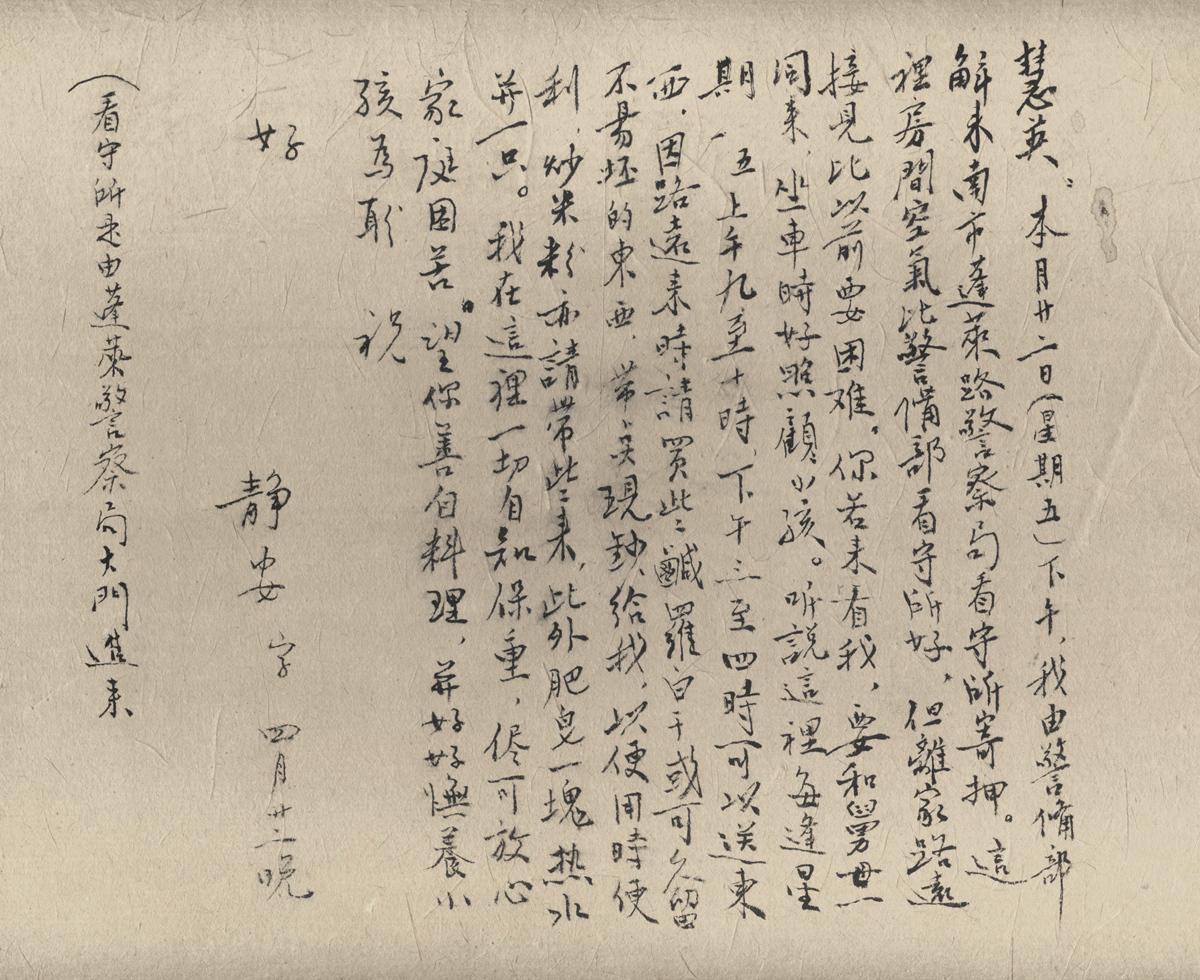 慧英：本月廿二日（星期五）下午，我由警備部
解来南市蓬萊路警察局看守所寄押。這
裡房間空氣比警備部看守所好，但離家路遠
接見比以前要困难。你若来看我，要和舅母
同来，坐車時好照顧小孩。听説這裡每逢星
期一、五上午九至十時，下午三至四時可以送東
西，因路遠来時請買些鹹羅白干或可久留
不易坯的東西，帶点現鈔給我，以便用時便
利，炒米粉亦請帶些来，此外肥皂一塊热水
并一只。我在這裡一切自知保重，侭可放心
家庭困苦。望你善自料理，并好好撫養小
孩為盼　祝
好
静安　字　四月廿二晚
（看守所是由蓬萊警察局大門進来